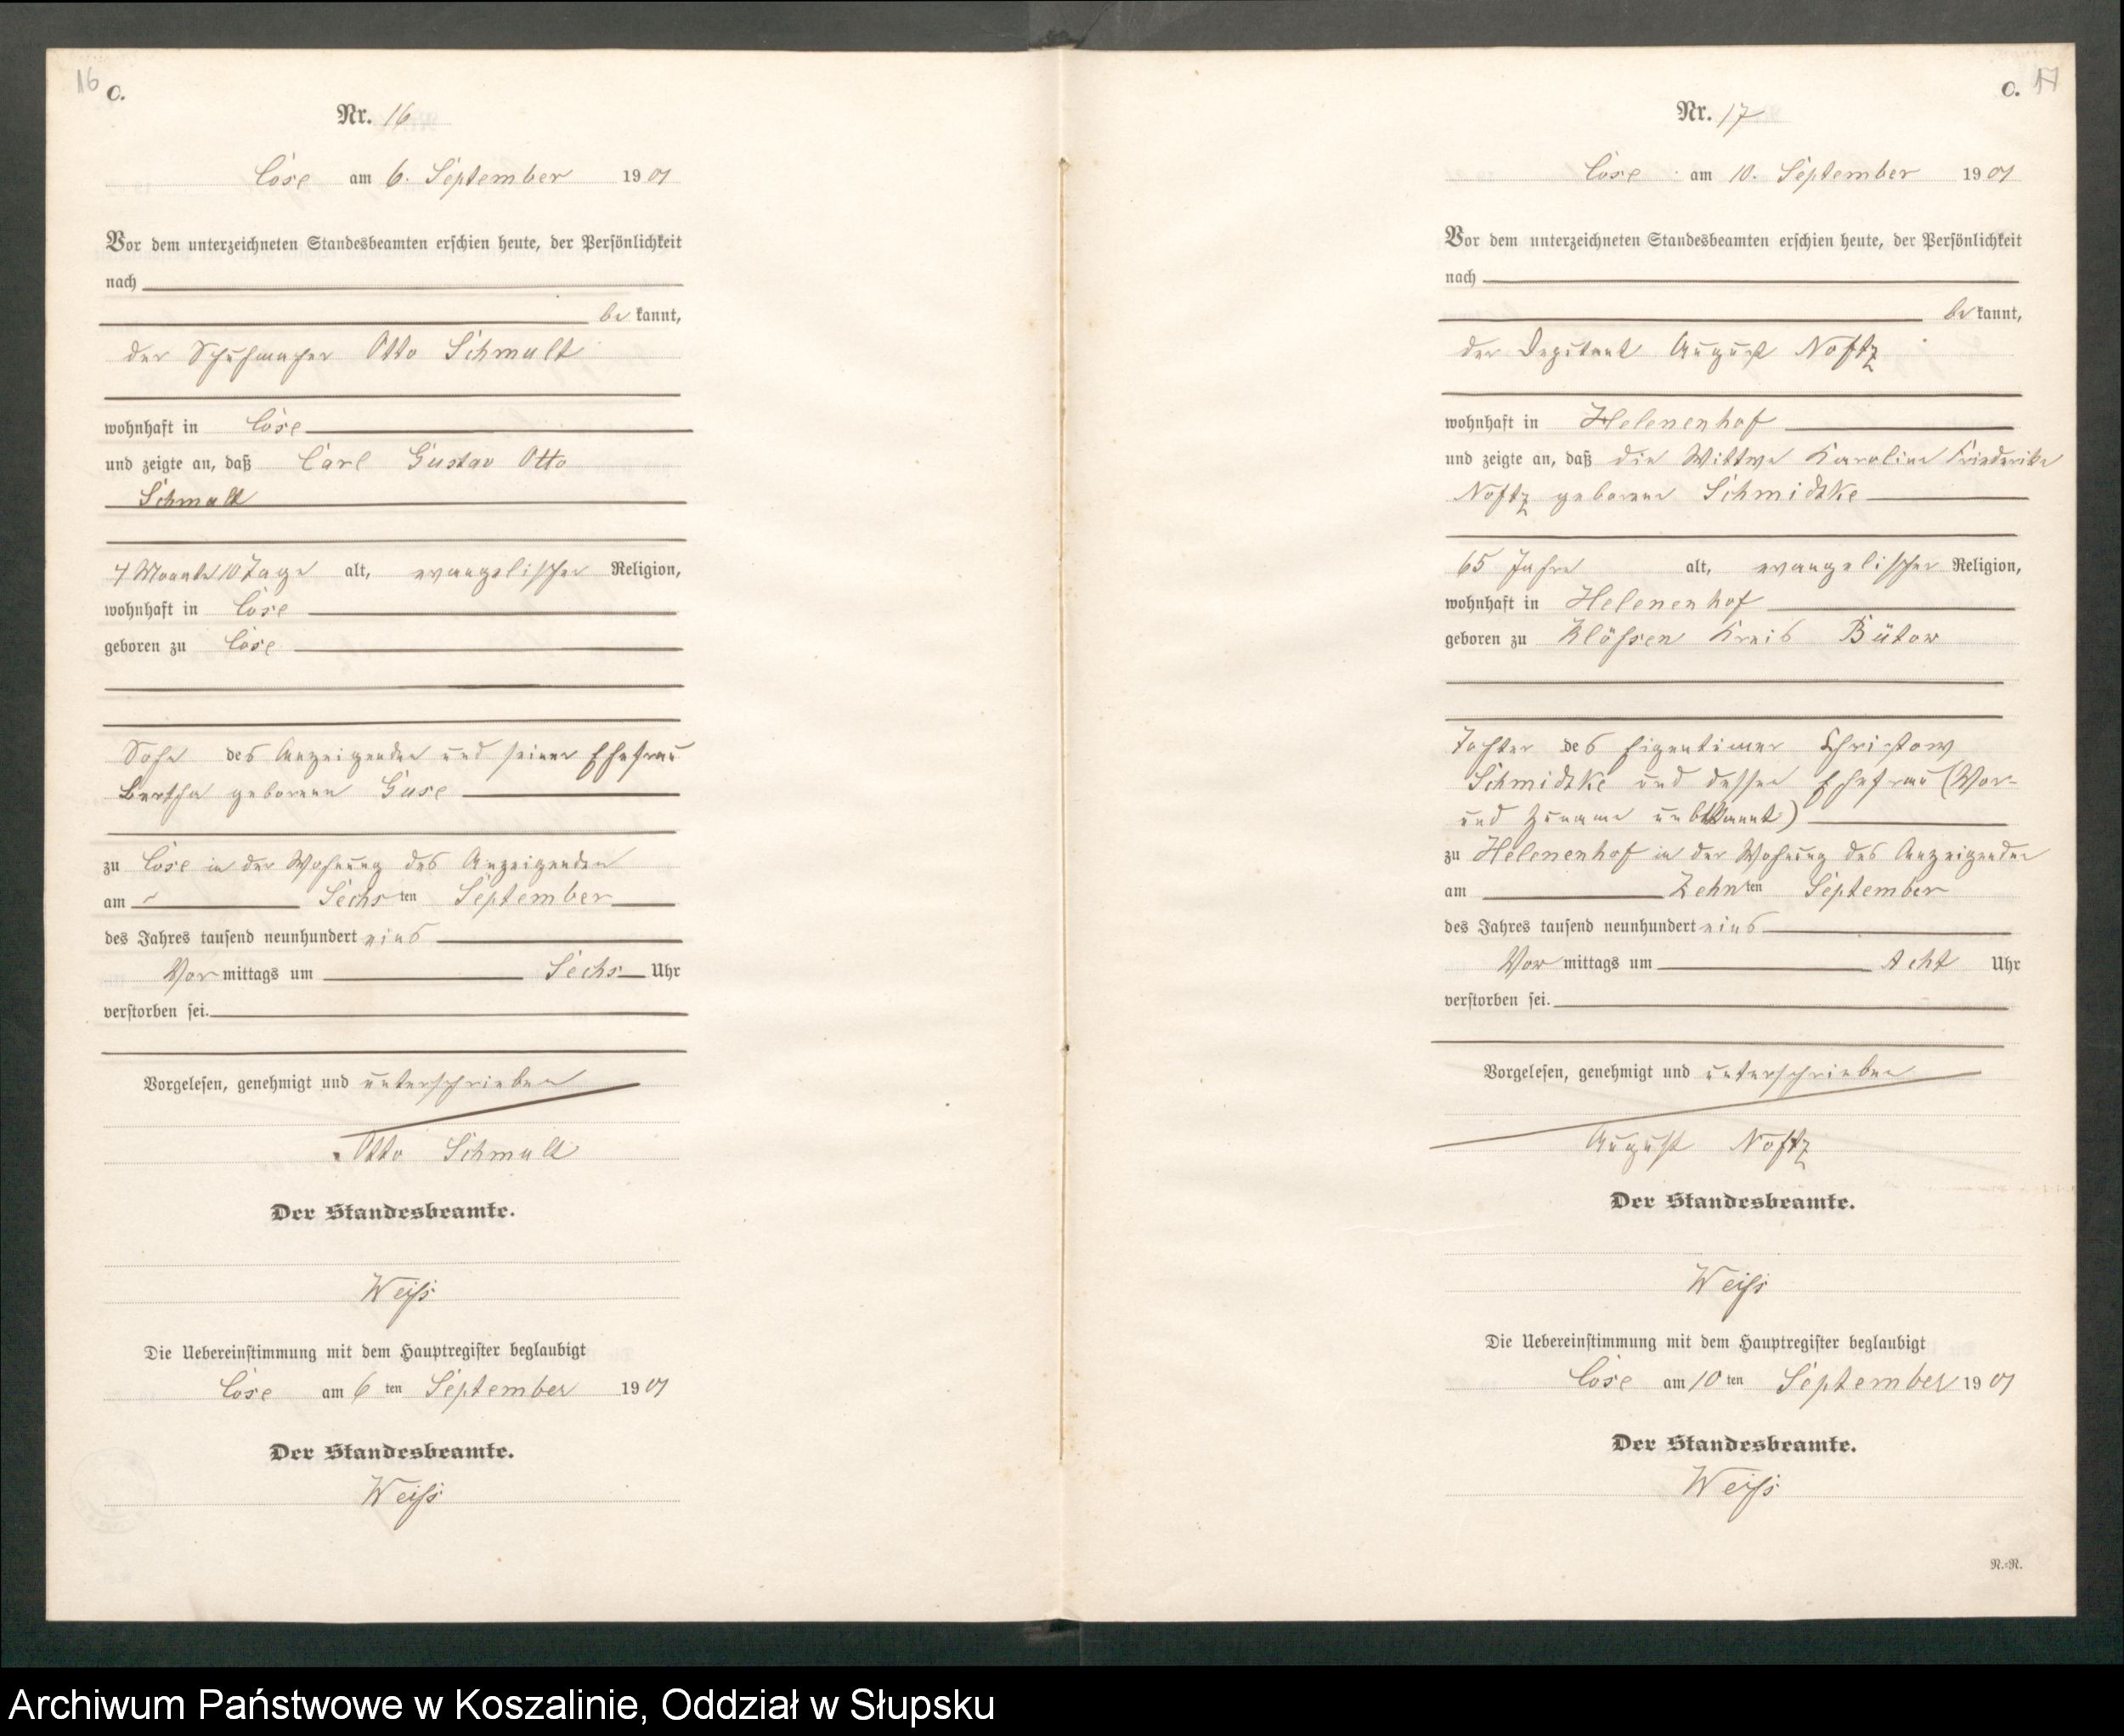 16
C.
Nr. 16
Cose am 6. September 1901
Vor dem unterzeichneten Standesbeamten erschien heute, der Persönlichkeit
nach
be kannt,
der Schuhmacher Otto Schmalt
wohnhaft in Cose
und zeigte an, daß Carl Gustav Otto
Schmalt
Monate 10 Tage alt, evangelischer Religion,
wohnhaft in Cose
geboren zu Cose
Sohn des Anzeigenden und seiner Ehefrau
Bertha geborenen Guse
zu Cose in der Wohnung des Anzeigenden
am Sechsten September
des Jahres tausend neunhundert eins
Vormittags um Sechs Uhr
verstorben sei.
Vorgelesen, genehmigt und unterschrieben
Otto Schmalt
Der Standesbeamte.
Weiß
Die Uebereinstimmung mit dem Hauptregister beglaubigt
Cose am 6ten September 1901
Der Standesbeamte.
Weiß
C. 17
Nr. 17
Cose am 10. September 1901
Vor dem unterzeichneten Standesbeamten erschien heute, der Persönlichkeit
nach
be kannt,
der Deputant August Noftz
wohnhaft in Helenenhof
und zeigte an, daß die Wittwe Karoline Friederike
Noftz geborene Schmidtke
65 Jahre alt, evangelischer Religion,
wohnhaft in Helenenhof
geboren zu Klößen Kreis Bütow
Tochter des Eigentümer
Schmidtke und dessen Ehefrau (Vor-
und Zuname unbekannt)
zu Helenenhof in der Wohnung des Anzeigenden
am Zehnten September
des Jahres tausend neunhundert eins
Vormittags um Acht Uhr
verstorben sei.
Vorgelesen, genehmigt und unterschrieben
August Noftz
Der Standesbeamte.
Weiß
Die Uebereinstimmung mit dem Hauptregister beglaubigt
Cose am 10ten September 1901
Der Standesbeamte.
Weiß
N.-R.
Archiwum Państwowe w Koszalinie, Oddział w Słupsku